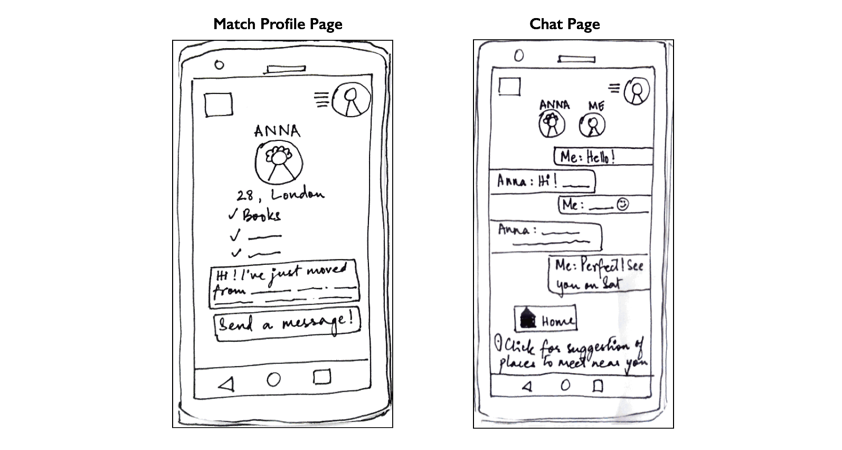 Match Profile Page
ANNA
28, London
✓ Books
✓
✓
Hi! I've just moved
from
Send a message!
Chat Page
ANNA ME
Me: Hello!
Anna: Hi!
Me: ☺
Anna:
Me: Perfect! See
you on Sat
Home
Click for suggestion of
places to meet near you